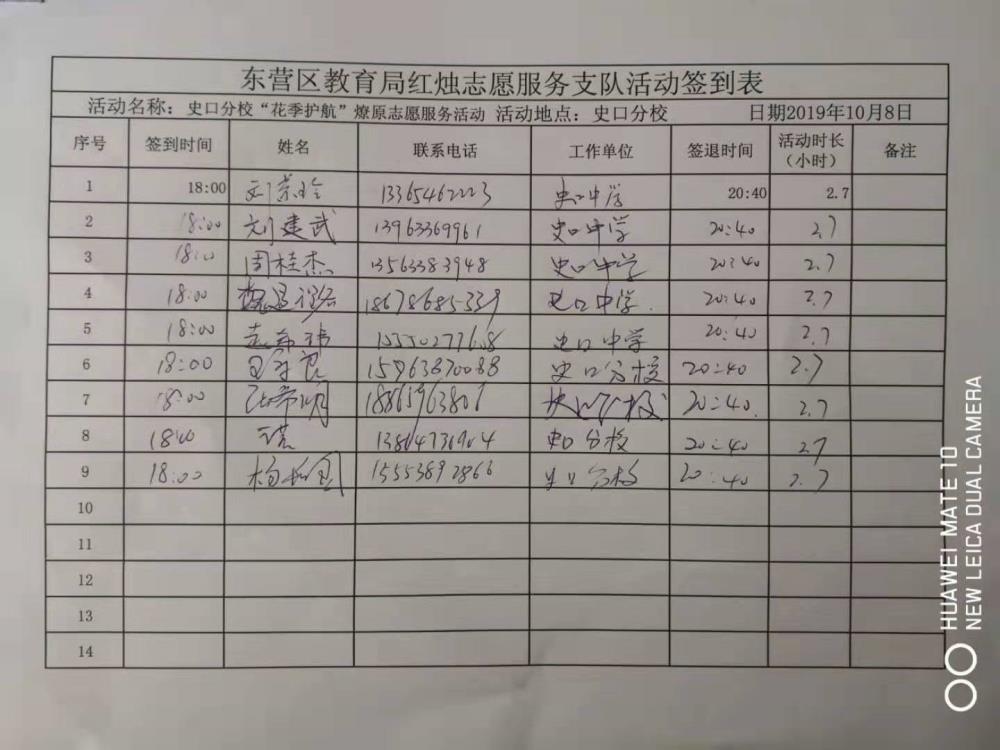 东营区教育局红烛志愿服务支队活动签到表
活动名称：史口分校“花季护航”燎原志愿服务活动 活动地点：史口分校 日期2019年10月8日
序号 签到时间 姓名 联系电话 工作单位 签退时间 活动时长（小时） 备注
1 18:00 13365462223 史口中学 20:40 2.7
2 18:00 刘建武 13963369961 史口中学 20:40 2.7
3 18:00 周桂杰 13563383948 史口中学 20:40 2.7
4 18:00 18678685339 史口中学. 20:40 2.7
5 18:00 史口中学 20:40 2.7
6 18:00 15763870088 史口分校 20:40 2.7
7 18:00 20:40. 2.7
8 18:00 史口分校 20:40 2.7
9 18:00 15553892866 史口分校 20:40 2.7
10
11
12
13
14
HUAWEI MATE 10
NEW LEICA DUAL CAMERA